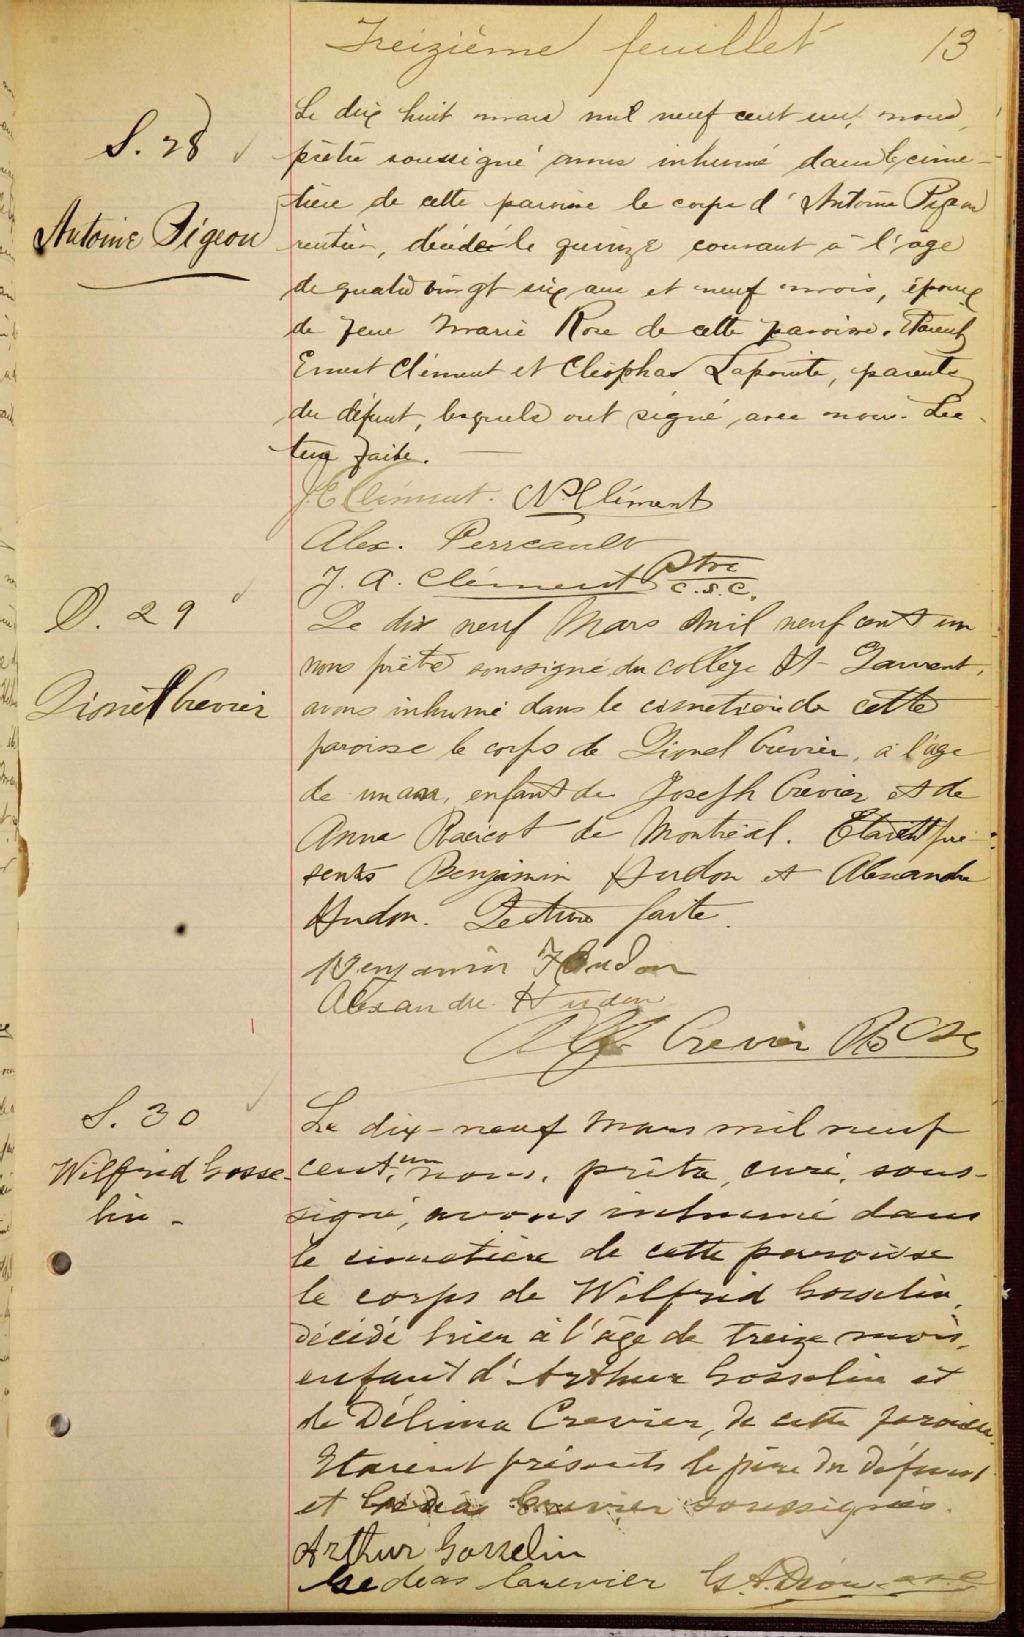 Treizième feuillet 13
S. 28
Antoine Pigeon
Le dix huit mars mil neuf cent un, nous,
prêtre soussigné avons inhumé dans le cime-
tière de cette paroisse le corps d'Antoine Pigeon
rentier, décédé le quinze courant à l'age
de quatre vingt six ans et neuf mois, époux
de feue Marie Rose de cette paroisse. Etaient
Ernest Clément et Cléophas Lapointe, parents
du défunt, lesquels ont signé avec nous. Lec-
ture faite.
J. E. Clément. N. Clément
Alex. Perreault
J. A. Clément Ptre
c.s.c.
29
Lionel Crevier
Le dix neuf Mars Mil neuf cent un
nous prêtre soussigné du collège St Laurent,
avons inhumé dans le cimetière de cette
paroisse le corps de Lionel Crevier, à l'âge
de un an, enfant de Joseph Crevier et de
Anna Racicot de Montréal. Etaient pré-
sents Benjamin Hudon et Alexandre
Hudon. Lecture faite.
Benjamin Hudon
Alexandre Hudon
Crevier Ptre CSC
S. 30
Wilfrid Gosse-
lin -
Le dix-neuf Mars mil neuf
cent, un nous, prêtre, curé, sous-
signé, avons inhumé dans
le cimetière de cette paroisse
le corps de Wilfrid Gosselin,
décédé hier à l'âge de treize mois,
enfant d'Arthur Gosselin et
de Délima Crevier, de cette paroisse.
Etaient présents le père du défunt
et Crevier soussignés.
Arthur Gosselin
Gédéas Crevier G. A. Dion c.s.c.